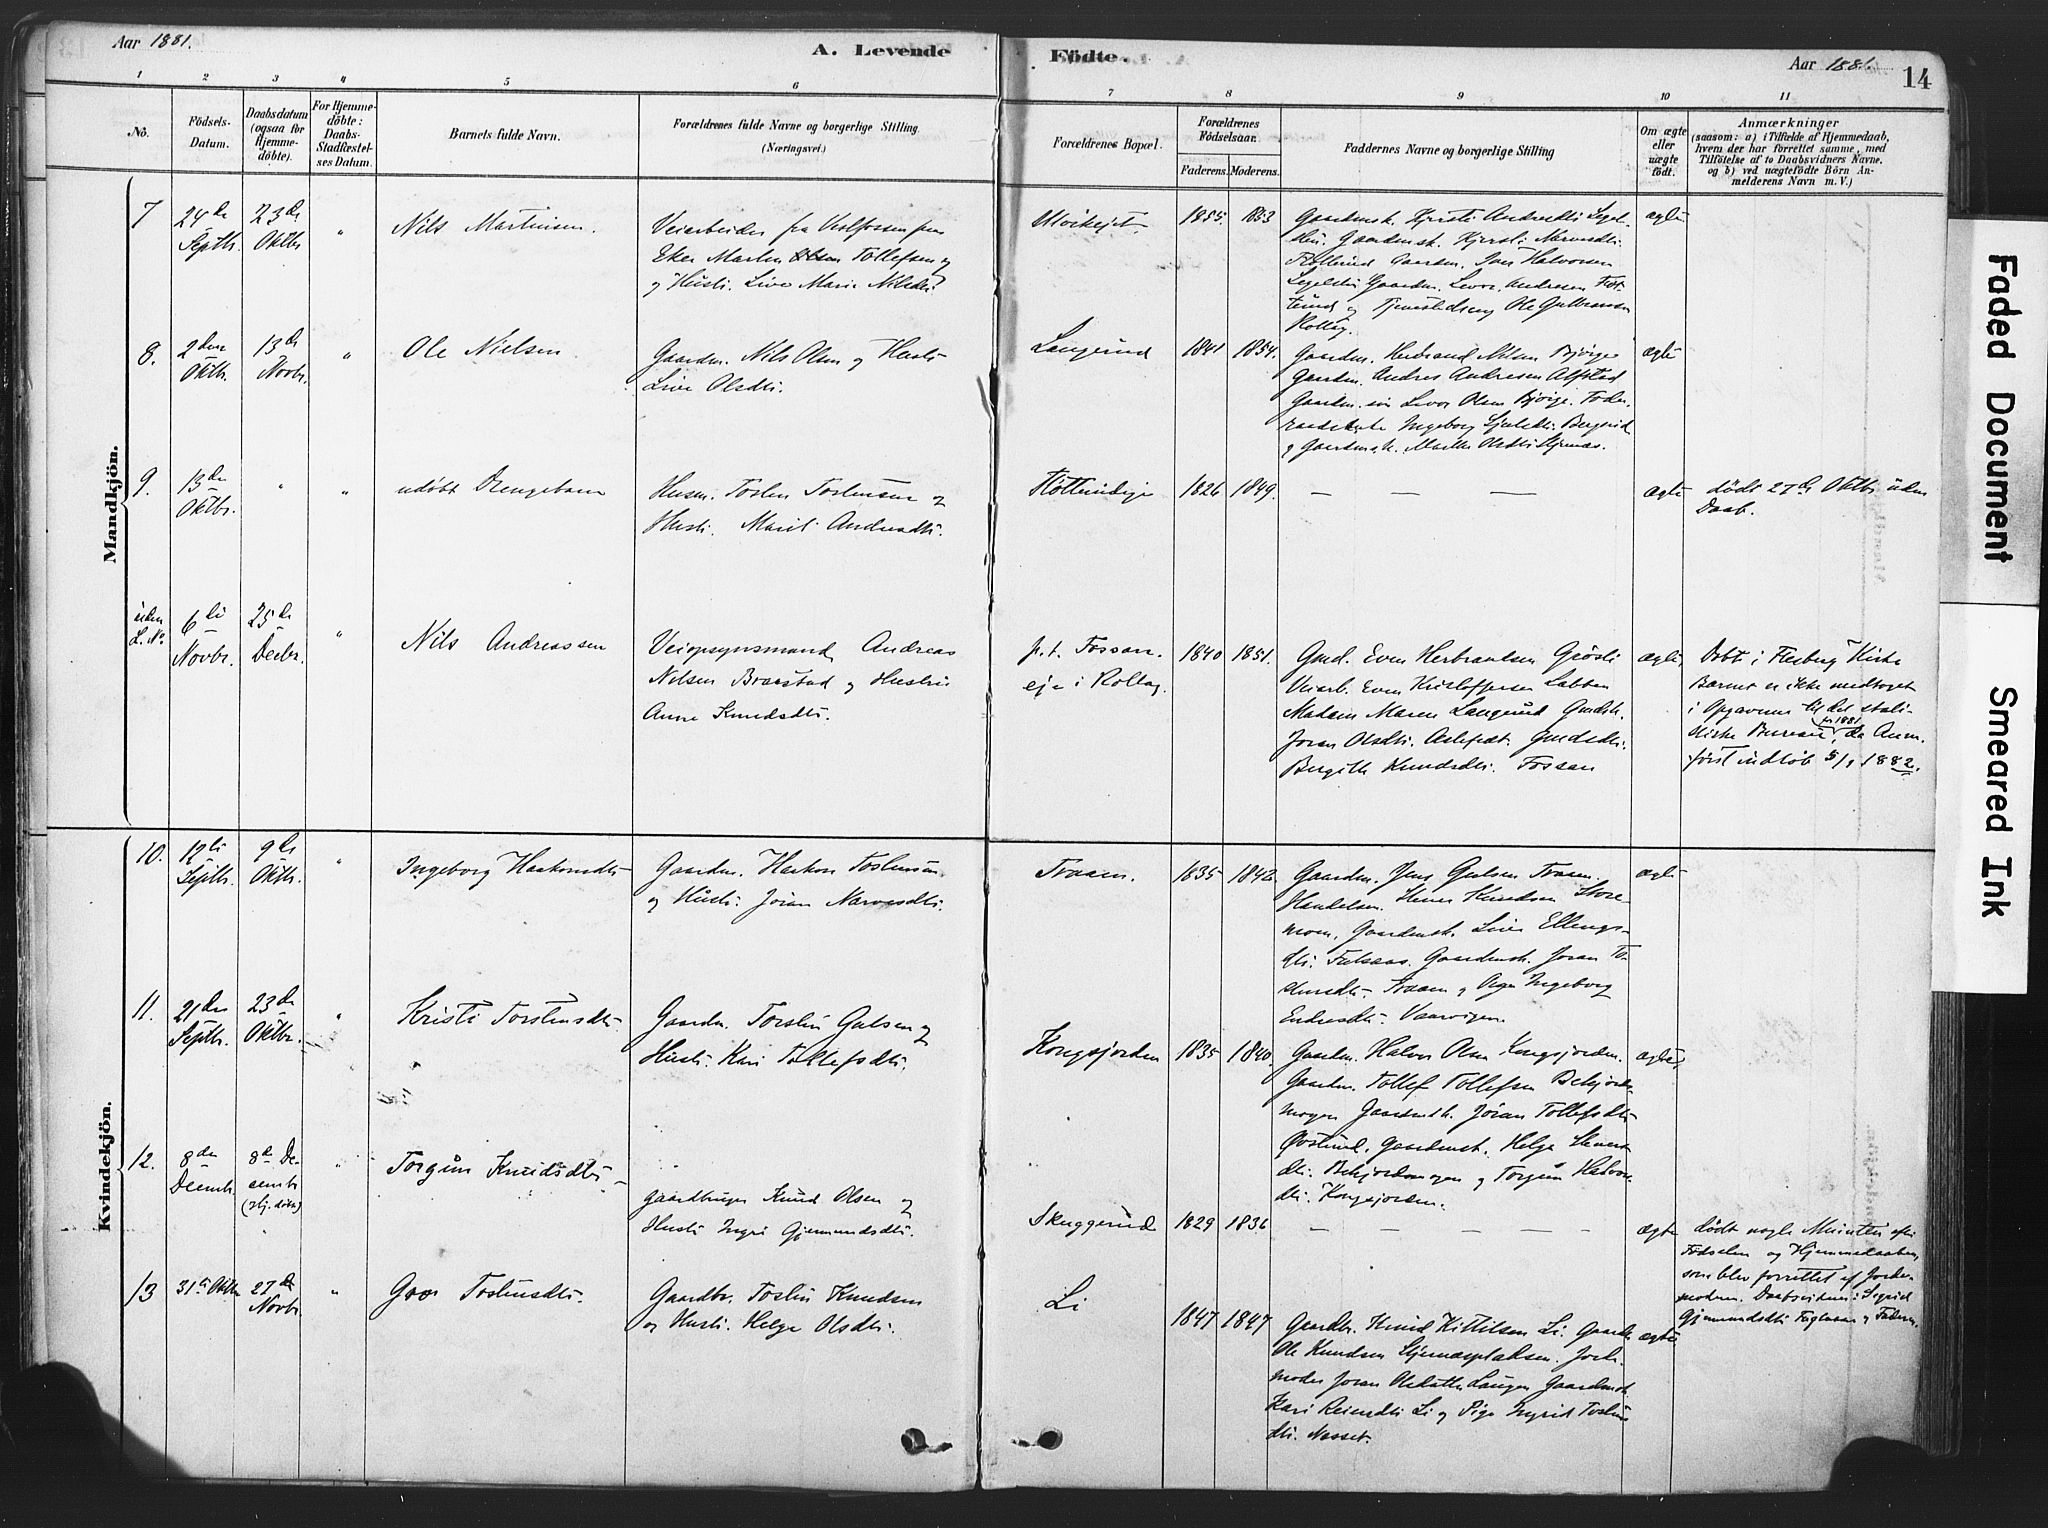 Aar 1881.
A. Levende
Födte.
Aar 1881.
14
1
2
3
4
5
6
7
8
9
10
11
No.
Födsels-
Datum.
Daabsdatum
(ogsaa for
Hjemme-
döbte).
For Hjemme-
döbte:
Daabs-
Stadfæstel-
ses Datum.
Barnets fulde Navn.
Forældrenes fulde Navne og borgerlige Stilling.
(Næringsvei.)
Forældrenes Bopæl.
Forældrenes
Födselsaar.
Faderens.
Moderens.
Faddernes Navne og borgerlige Stilling
Om ægte
eller
uægte
födt.
Anmærkninger
(saasom: a) i Tilfælde af Hjemmedaab,
hvem der har forrettet samme, med
Tilföielse af to Daabsvidners Navne.
og b) ved uægtefödte Börn An-
melderens Navn m. V.)
Mandkjön.
7
24de
Septbr.
23de
Oktbr
"
Nils Martinsen.
Veiarbeider fra Vestfossen
Eker Martin Tollefsen og
Hustr. Live Marie Nilsdtr.
1855.
1853
Gaardmsk. Kjersti Andresdtr
Gaardmsk. Kjersti Narvesdtr.
Gaardm. Halvorsen
Gaardm. Levor Andresen
og Ole Gulbransen
Rollag.
ægte
8.
2den
Oktbr.
13de
Novbr.
"
Ole Nielsen
Gaardm. Nils Olsen og Hustr.
Live Olsdtr.
Langerud
1841
1854.
Gaardm. Herbrand Nilsen Bjørge
Gaardm. Andres Andresen Alfstad
Gaardm. Levor Olsen Bjørge.
Ingeborg
og Gaardmsk. Olsdtr
ægte
9.
13de
Oktbr.
"
"
udøbt Drengebarn
Husm. Tosten Tostensen og
Hustr. Marit Andresdtr.
1826
1849.
— — —
ægte
dødt 27de Oktbr uden
Daab.
uden
L. No.
6te
Novbr.
25de
Decbr.
"
Nils Andreassen
Veiopsynsmand Andreas
Nilsen Braastad og Hustru
Anne Knudsdtr.
p.t. Fossan-
eje i Rollag.
1840
1851.
Gmd. Even Herbrandsen Grøsli
Veiarb. Even Kristoffersen Labben
Madam Maren Langerud Gmdsk.
Joran Olsdtr. Gmdsdtr.
Bergith Knudsdtr. Fossan
ægte,
Døbt i Flesberg Kirke
Barnet er ikke medtaget
i Opgaverne til det stati-
stiske Bureau for 1881, da Anm.
først indløb 5/1 1882.
Kvindekjön.
10.
12te
Septbr.
9de
Oktbr.
"
Ingeborg Haakonsdtr.
Gaardm. Haakon Tostensen
og Hustr. Jøran Narvesdtr.
Traaen.
1835
1842
Gaardm. Jens Gulsen Traaen.
Handelsm. Knudsen Store-
moen, Gaardmsk. Live Ellings-
dtr. Gaardmsk. Joran
Traaen og Pige Ingeborg
Endresdtr. Vaarvigen.
ægte
11.
21de
Septbr.
23de
Oktbr.
"
Kristi Torstensdtr.
Gaardm. Torsten Gulsen og
Hustr. Kari Tollefsdtr.
Kongsjorden
1835
1840.
Gaardm. Halvor Olsen Kongsjorden.
Gaardm. Tollef Tollefsen Bekjorde-
mogen Gaardmsk. Jøran Tollefsdtr
Gaardmsk. Helge
dtr. Bekjordmogen og Torgun Halvors-
dtr. Kongsjorden.
ægte,
12.
8de
Decmbr.
8de De-
cembr
(Hj. døbt)
"
Torgun Knudsdtr.
Gaardbruger Knud Olsen og
Hustr. Ingri Gjermundsdtr.
Skuggerud
1829
1836
— — — —
ægte
dødt nogle Minutter efter
Fødselen og Hjemmedaaben,
som blev forrettet af Jorde-
modren. Daabsvidner: Sigrid
Gjermundsdtr og Faderen.
13
31te Oktbr
27de
Novbr.
"
Gro Tostensdtr.
Gaardbr. Tosten Knudsen
og Hustr. Helge Olsdtr.
Li
1847
1847
Gaardbr. Knud Kittilsen Li. Gaardbr
Ole Knudsen Jorde-
moder Joran Gaardmsk.
Kari Reiersdtr Li og Pige Ingrid Tostens
dtr. Nesset.
ægte
Faded Document
Smeared Ink